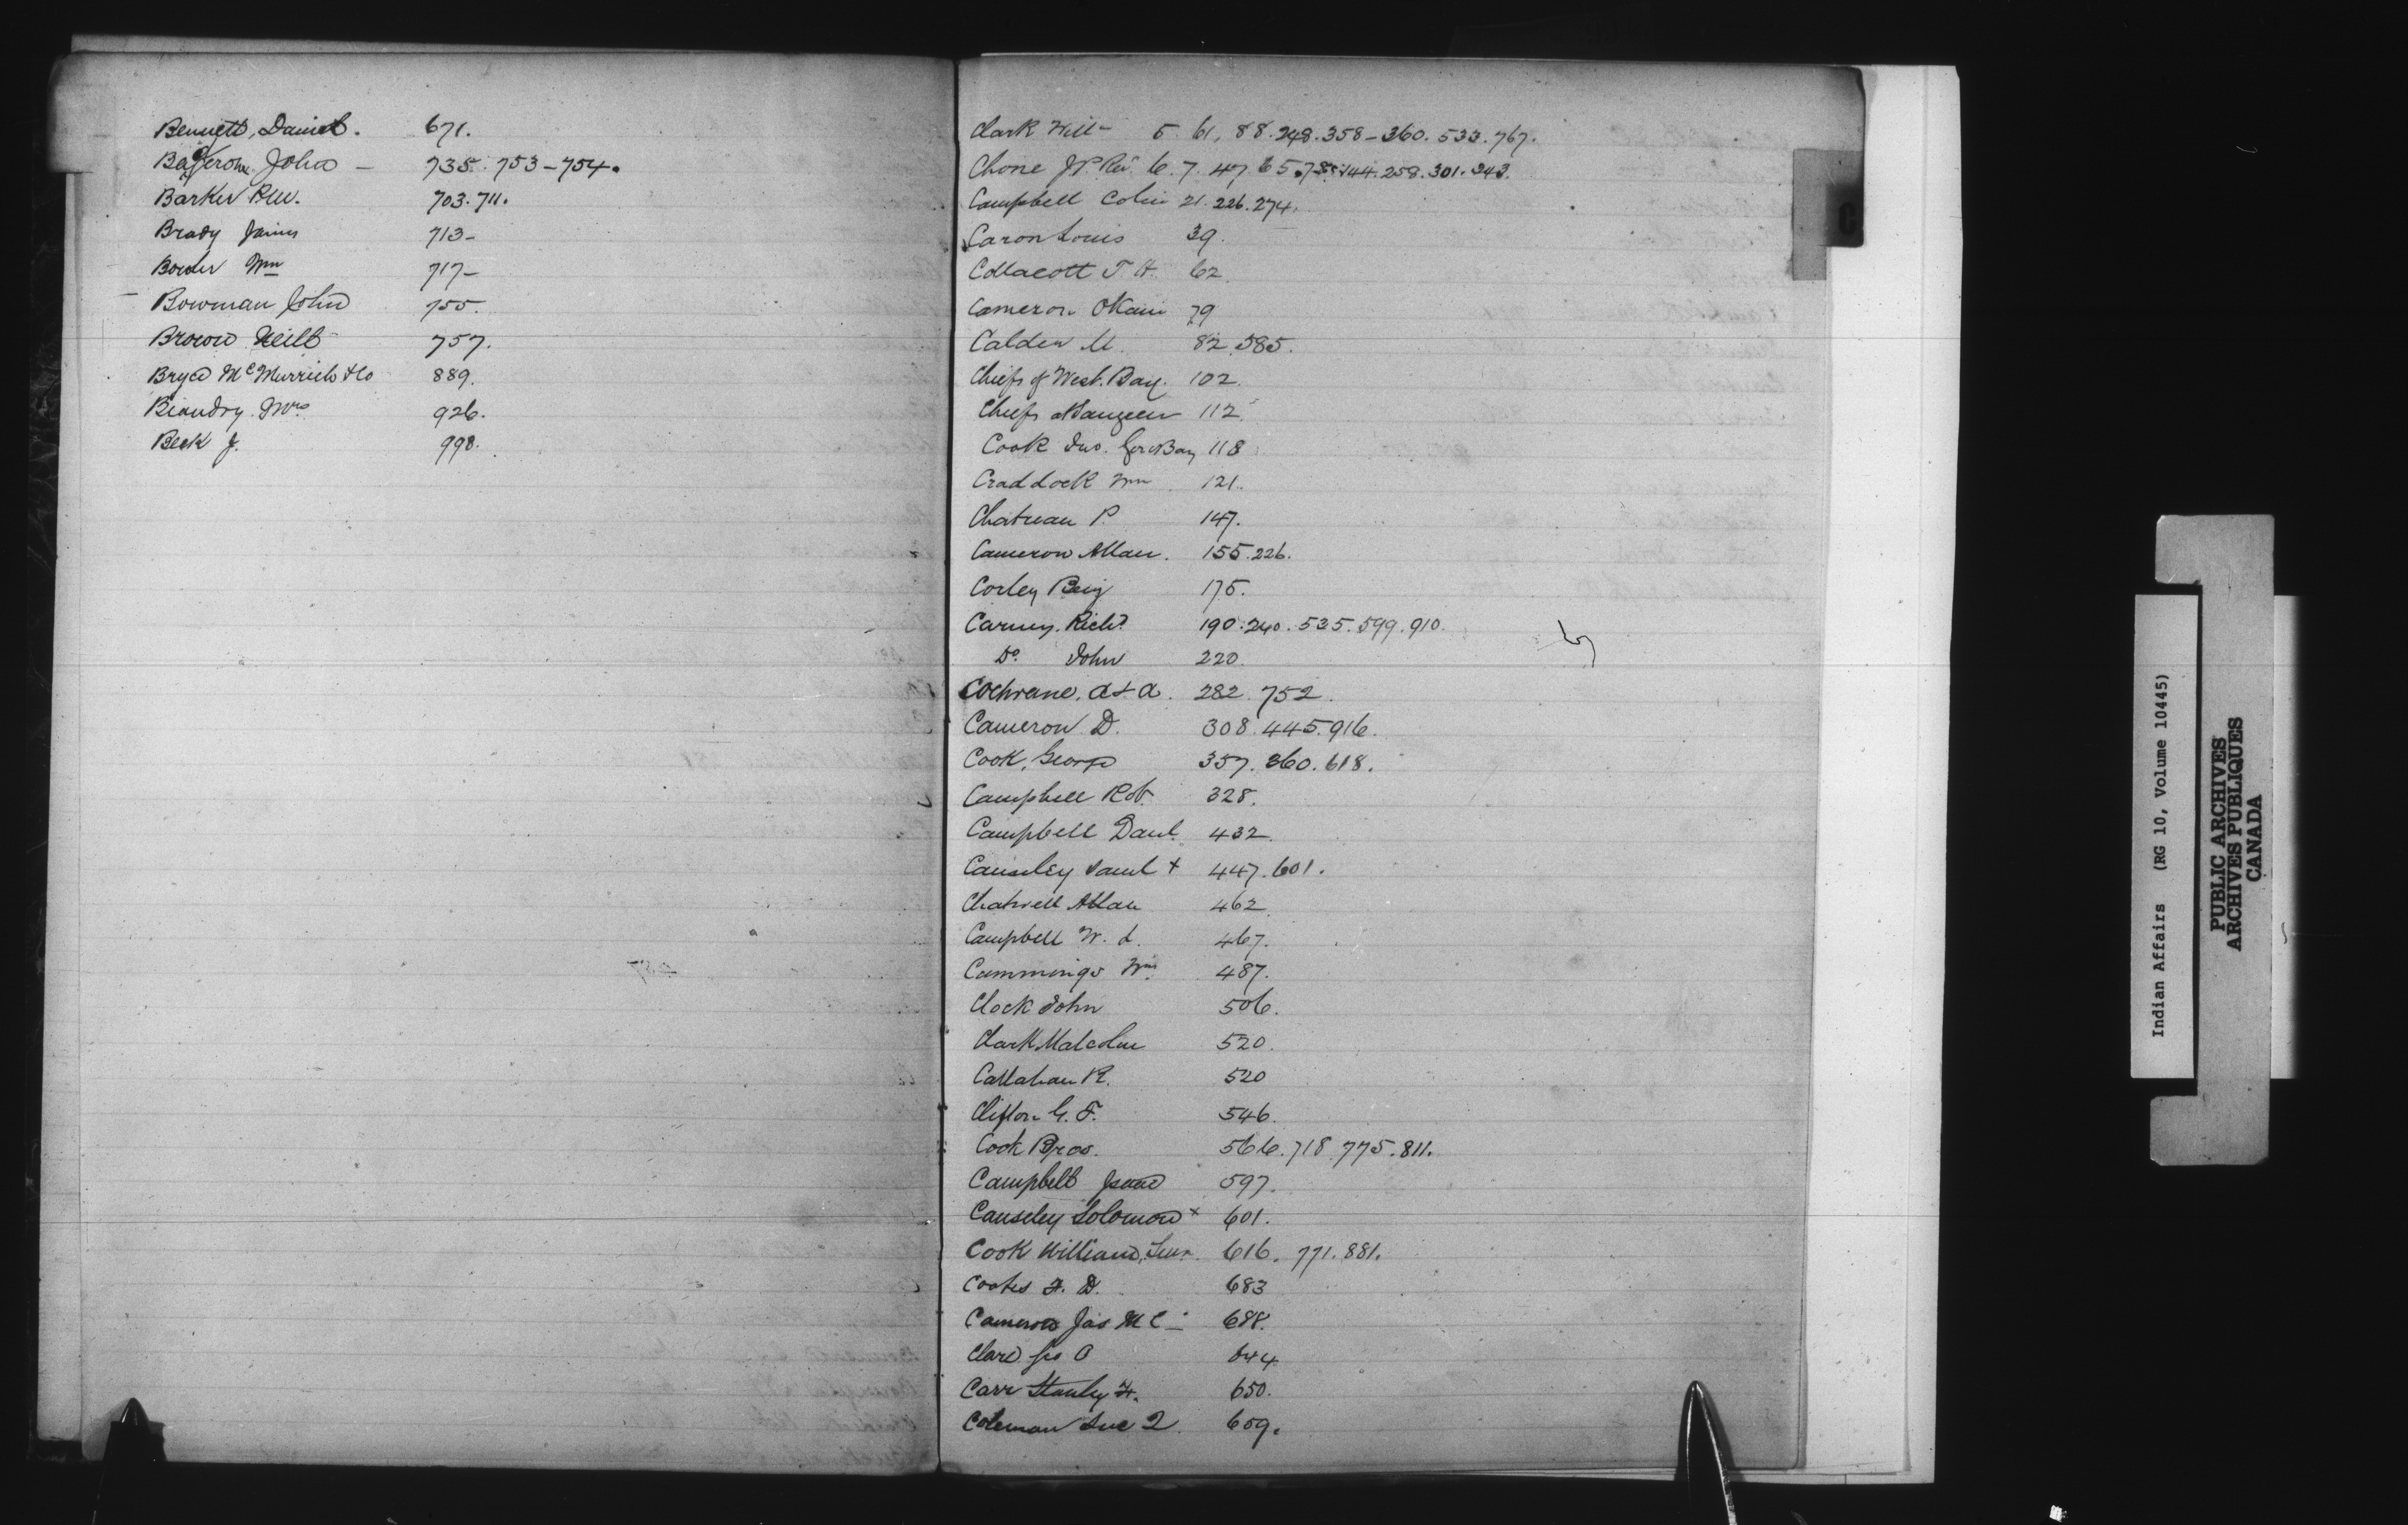 Bennett, Daniel. 671.
John — 735. 753-754.
Barker Rev. 703. 711.
Brady James 713-
Bowler Wm 717-
Bowman John 755.
Brown Neill 757.
Bryce McMurrich & Co 889.
Beaudry Mrs 926.
Beck J. 998.
Clark Will- 5. 61, 88. 248. 358-360. 533. 767.
Chone J.P. Rev. 6. 7. 47 65. 78. 144. 258. 301. 343.
Campbell Colin 21. 226. 274.
Caron Louis 39.
Collacott T. H. 62
Cameron 79
Calder M. 82. 585.
Chiefs of West Bay. 102.
Chiefs Saugeen 112.
Cook Jno. Gore Bay 118
Craddock Wm 121.
Chatreau P. 147.
Cameron Allan. 155. 226.
Corley Benj 175.
Carney Richd 190. 240. 535. 599. 910.
Do. John 220.
Cochrane, A & A. 282. 752.
Cameron D. 308. 445. 916.
Cook, George 357. 360. 618.
Campbell Robt. 328.
Campbell Danl. 432.
Causley Saml + 447. 601.
Chatwell Allan 462.
Campbell W. L. 467.
Cummings Wm 487.
Clock John 506.
Clark Malcolm 520.
Callahan R. 520
Clifton G. F. 546.
Cook Bros. 566. 718. 775. 811.
Campbell Isaac 597.
Causeley Solomon + 601.
Cook William, Senr. 616. 771. 881.
Coates F. D. 683
Cameron Jas Mc 688.
Clare 644
Carr Stanley F. 650.
Coleman 659.
C
Indian Affairs (RG 10, Volume 10445)
PUBLIC ARCHIVES
ARCHIVES PUBLIQUES
CANADA